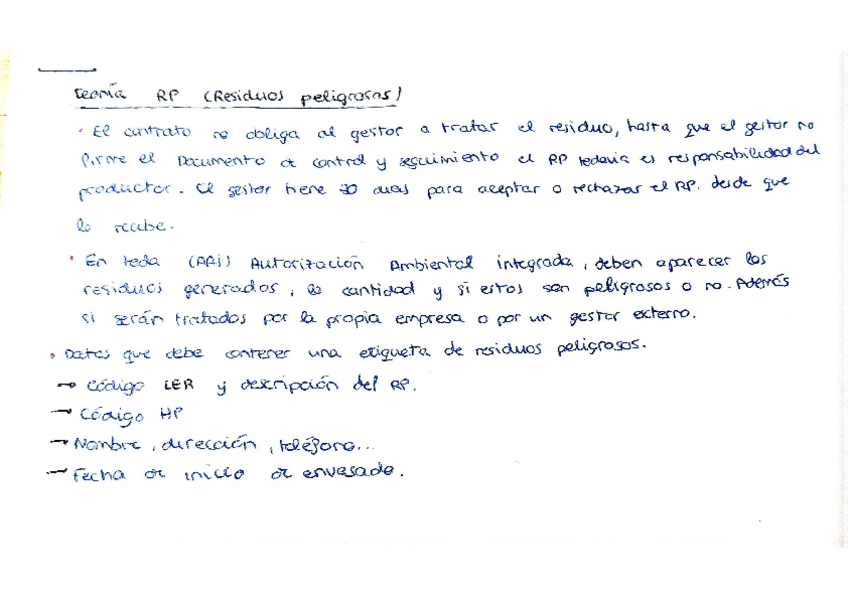 Teoría RP (Residuos peligrosos)
· El contrato no obliga al gestor a tratar el residuo, hasta que el gestor no
firme el Documento de control y seguimiento el RP todavía es responsabilidad del
productor. El gestor tiene 30 días para aceptar o rechazar el RP. desde que
lo recibe.
· En toda (AAi) Autorización Ambiental integrada, deben aparecer los
residuos generados, la cantidad y si estos son peligrosos o no. Además
si serán tratados por la propia empresa o por un gestor externo.
· Datos que debe contener una etiqueta de residuos peligrosos.
→ Código LER y descripción del RP.
→ Código HP
→ Nombre, dirección, teléfono...
→ Fecha de inicio de envasado.